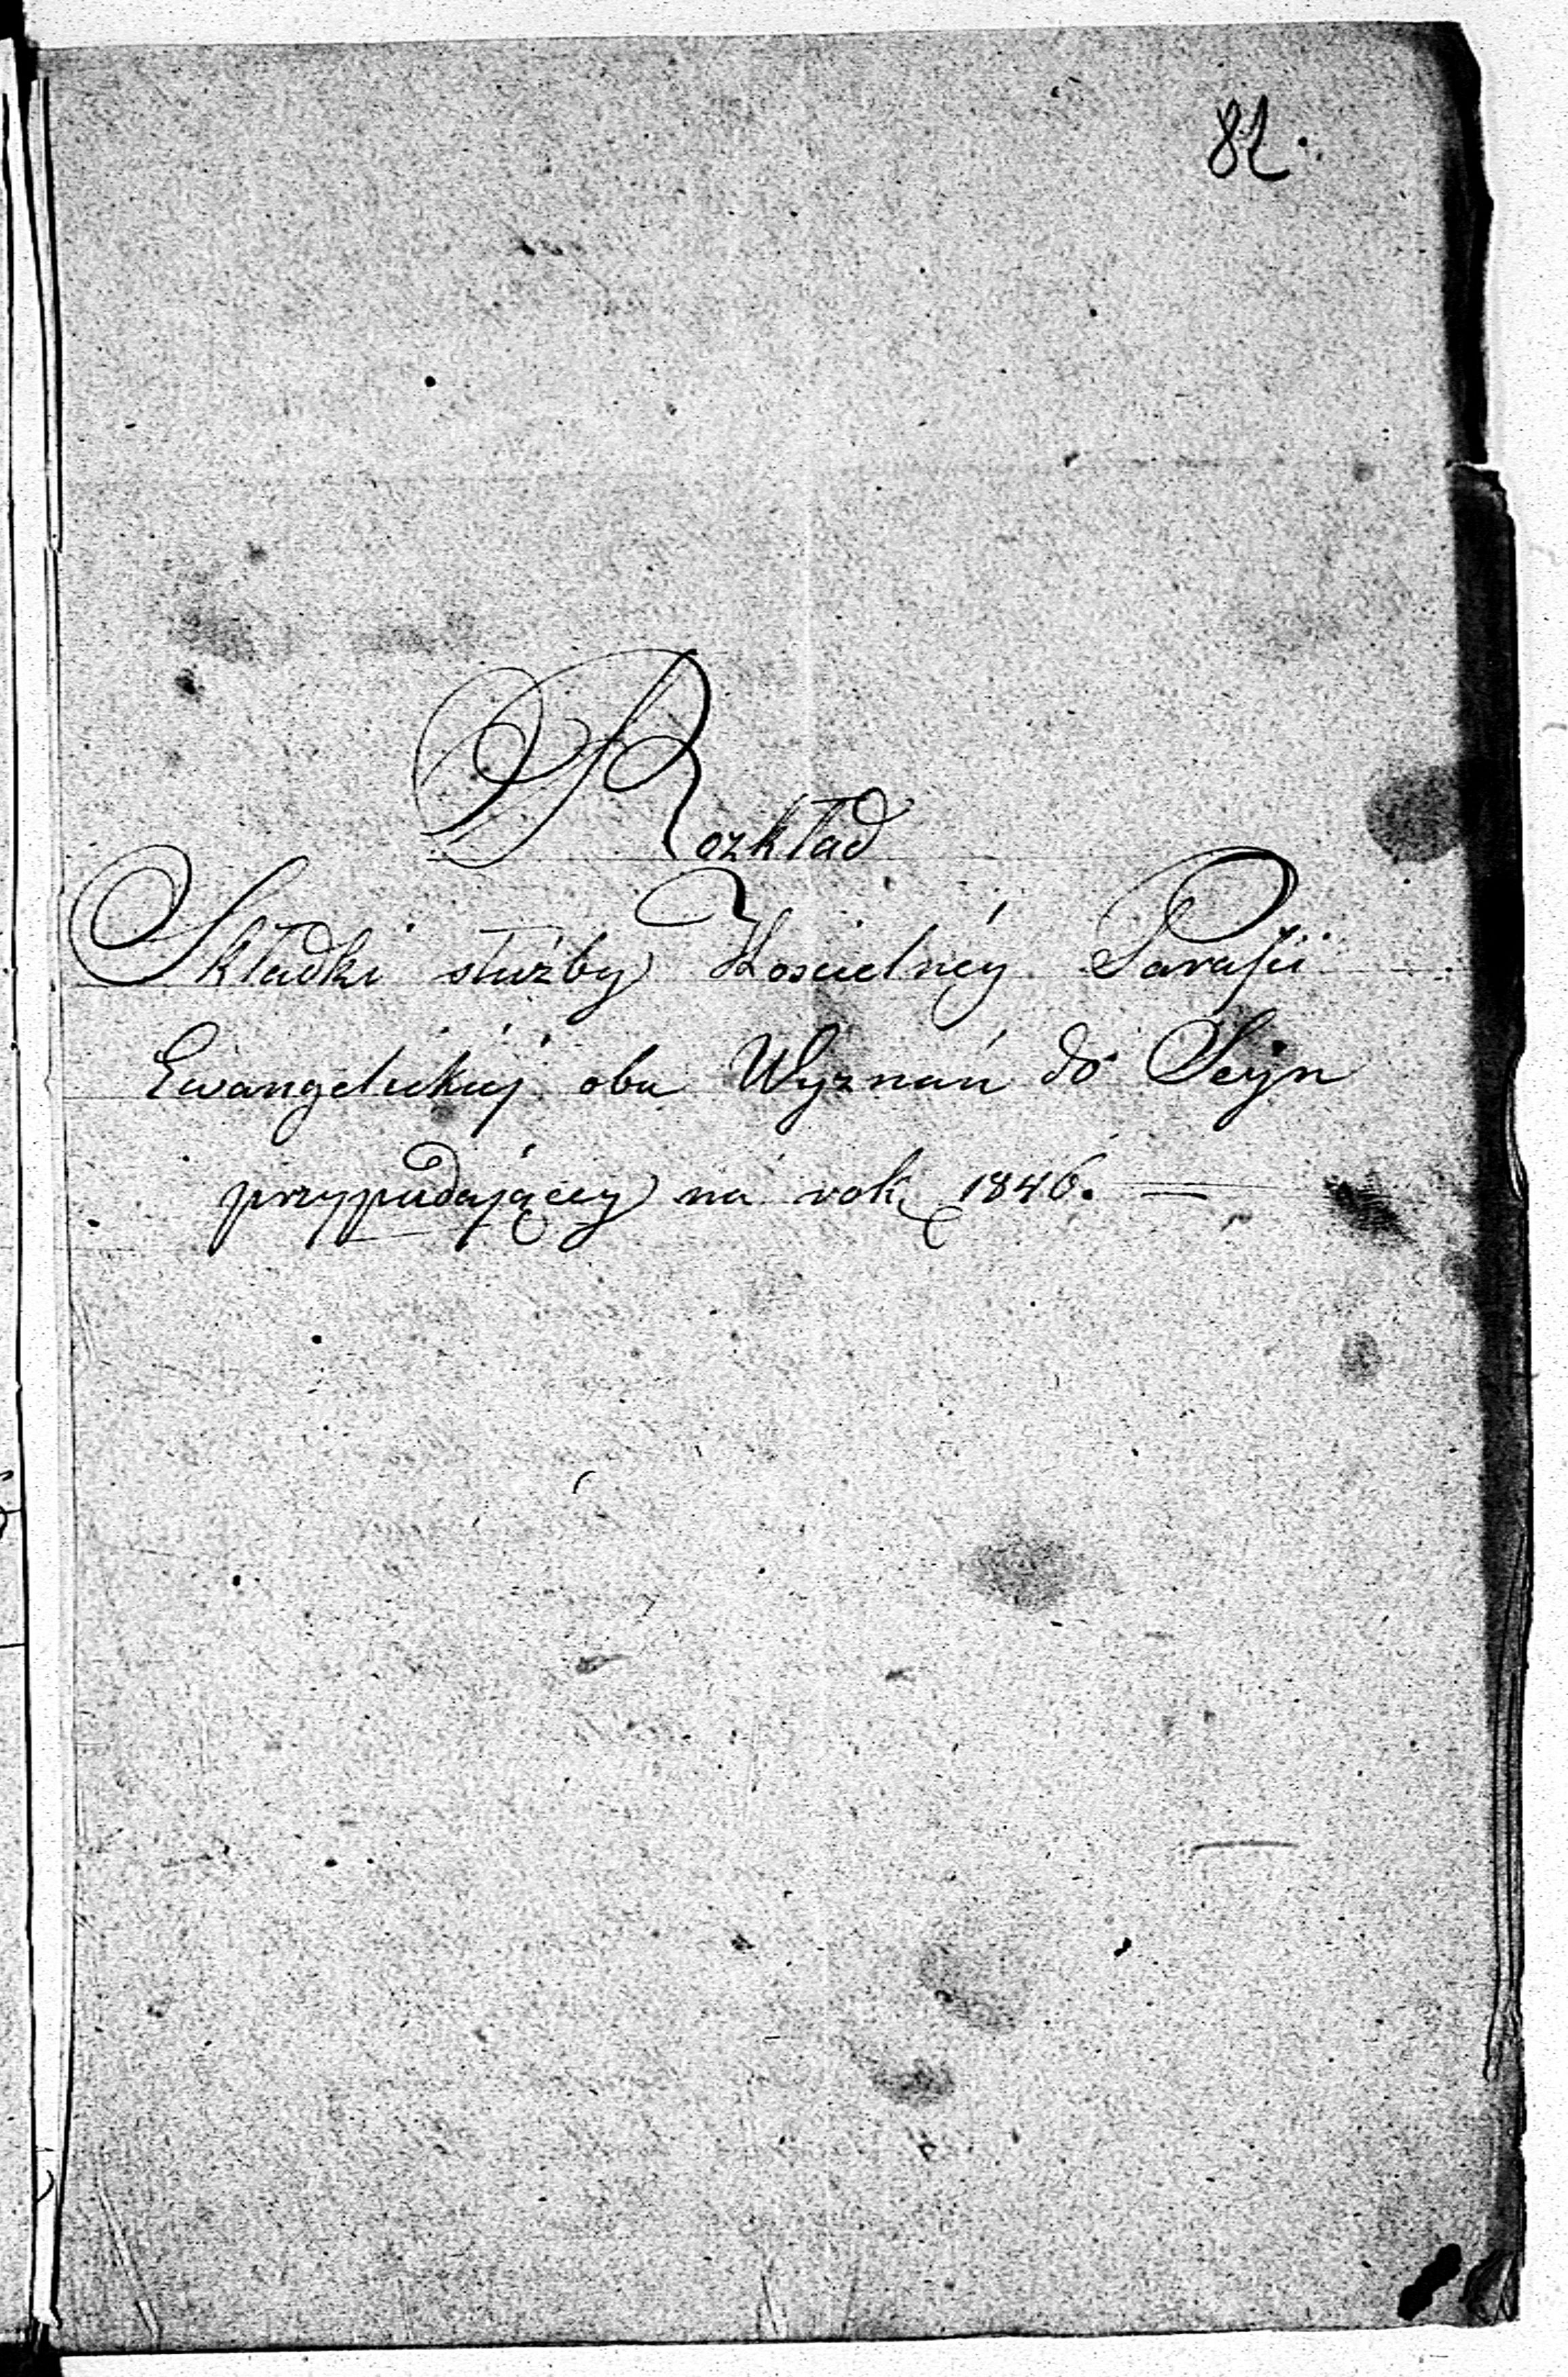 82.
Rozkład
Składki służby Kościelnéy Parafii
Ewangelickiéj obu Wyznań do Seyn
przypadającéy na rok 1846. =